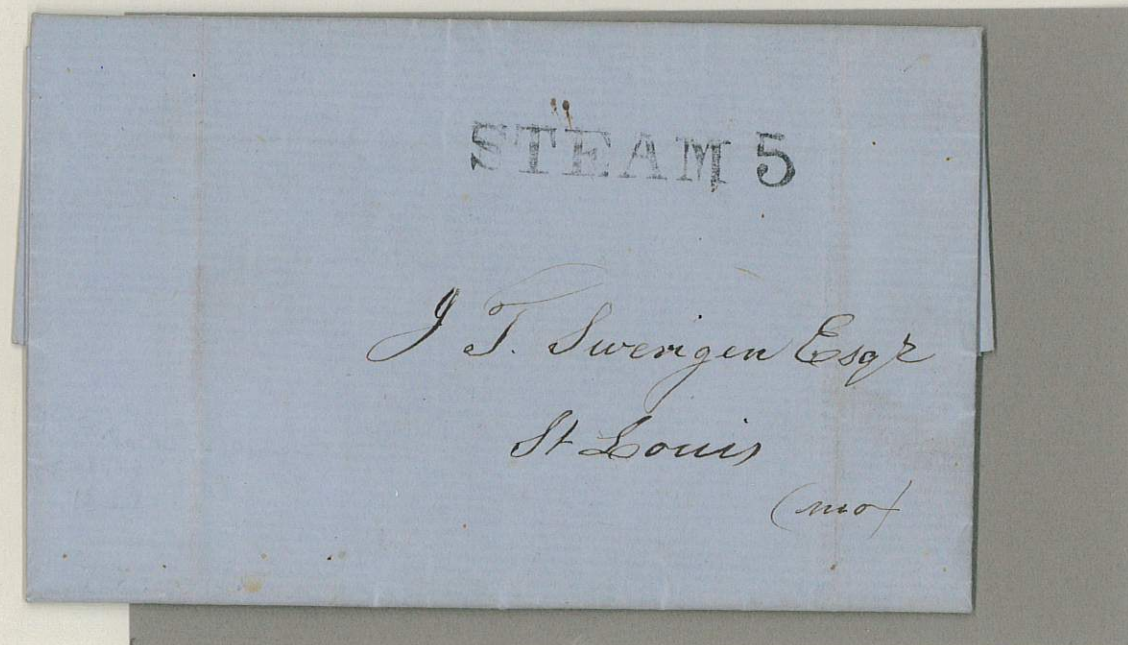 STEAM 5
J T. Swerigen Esqr
St Louis
(mo)